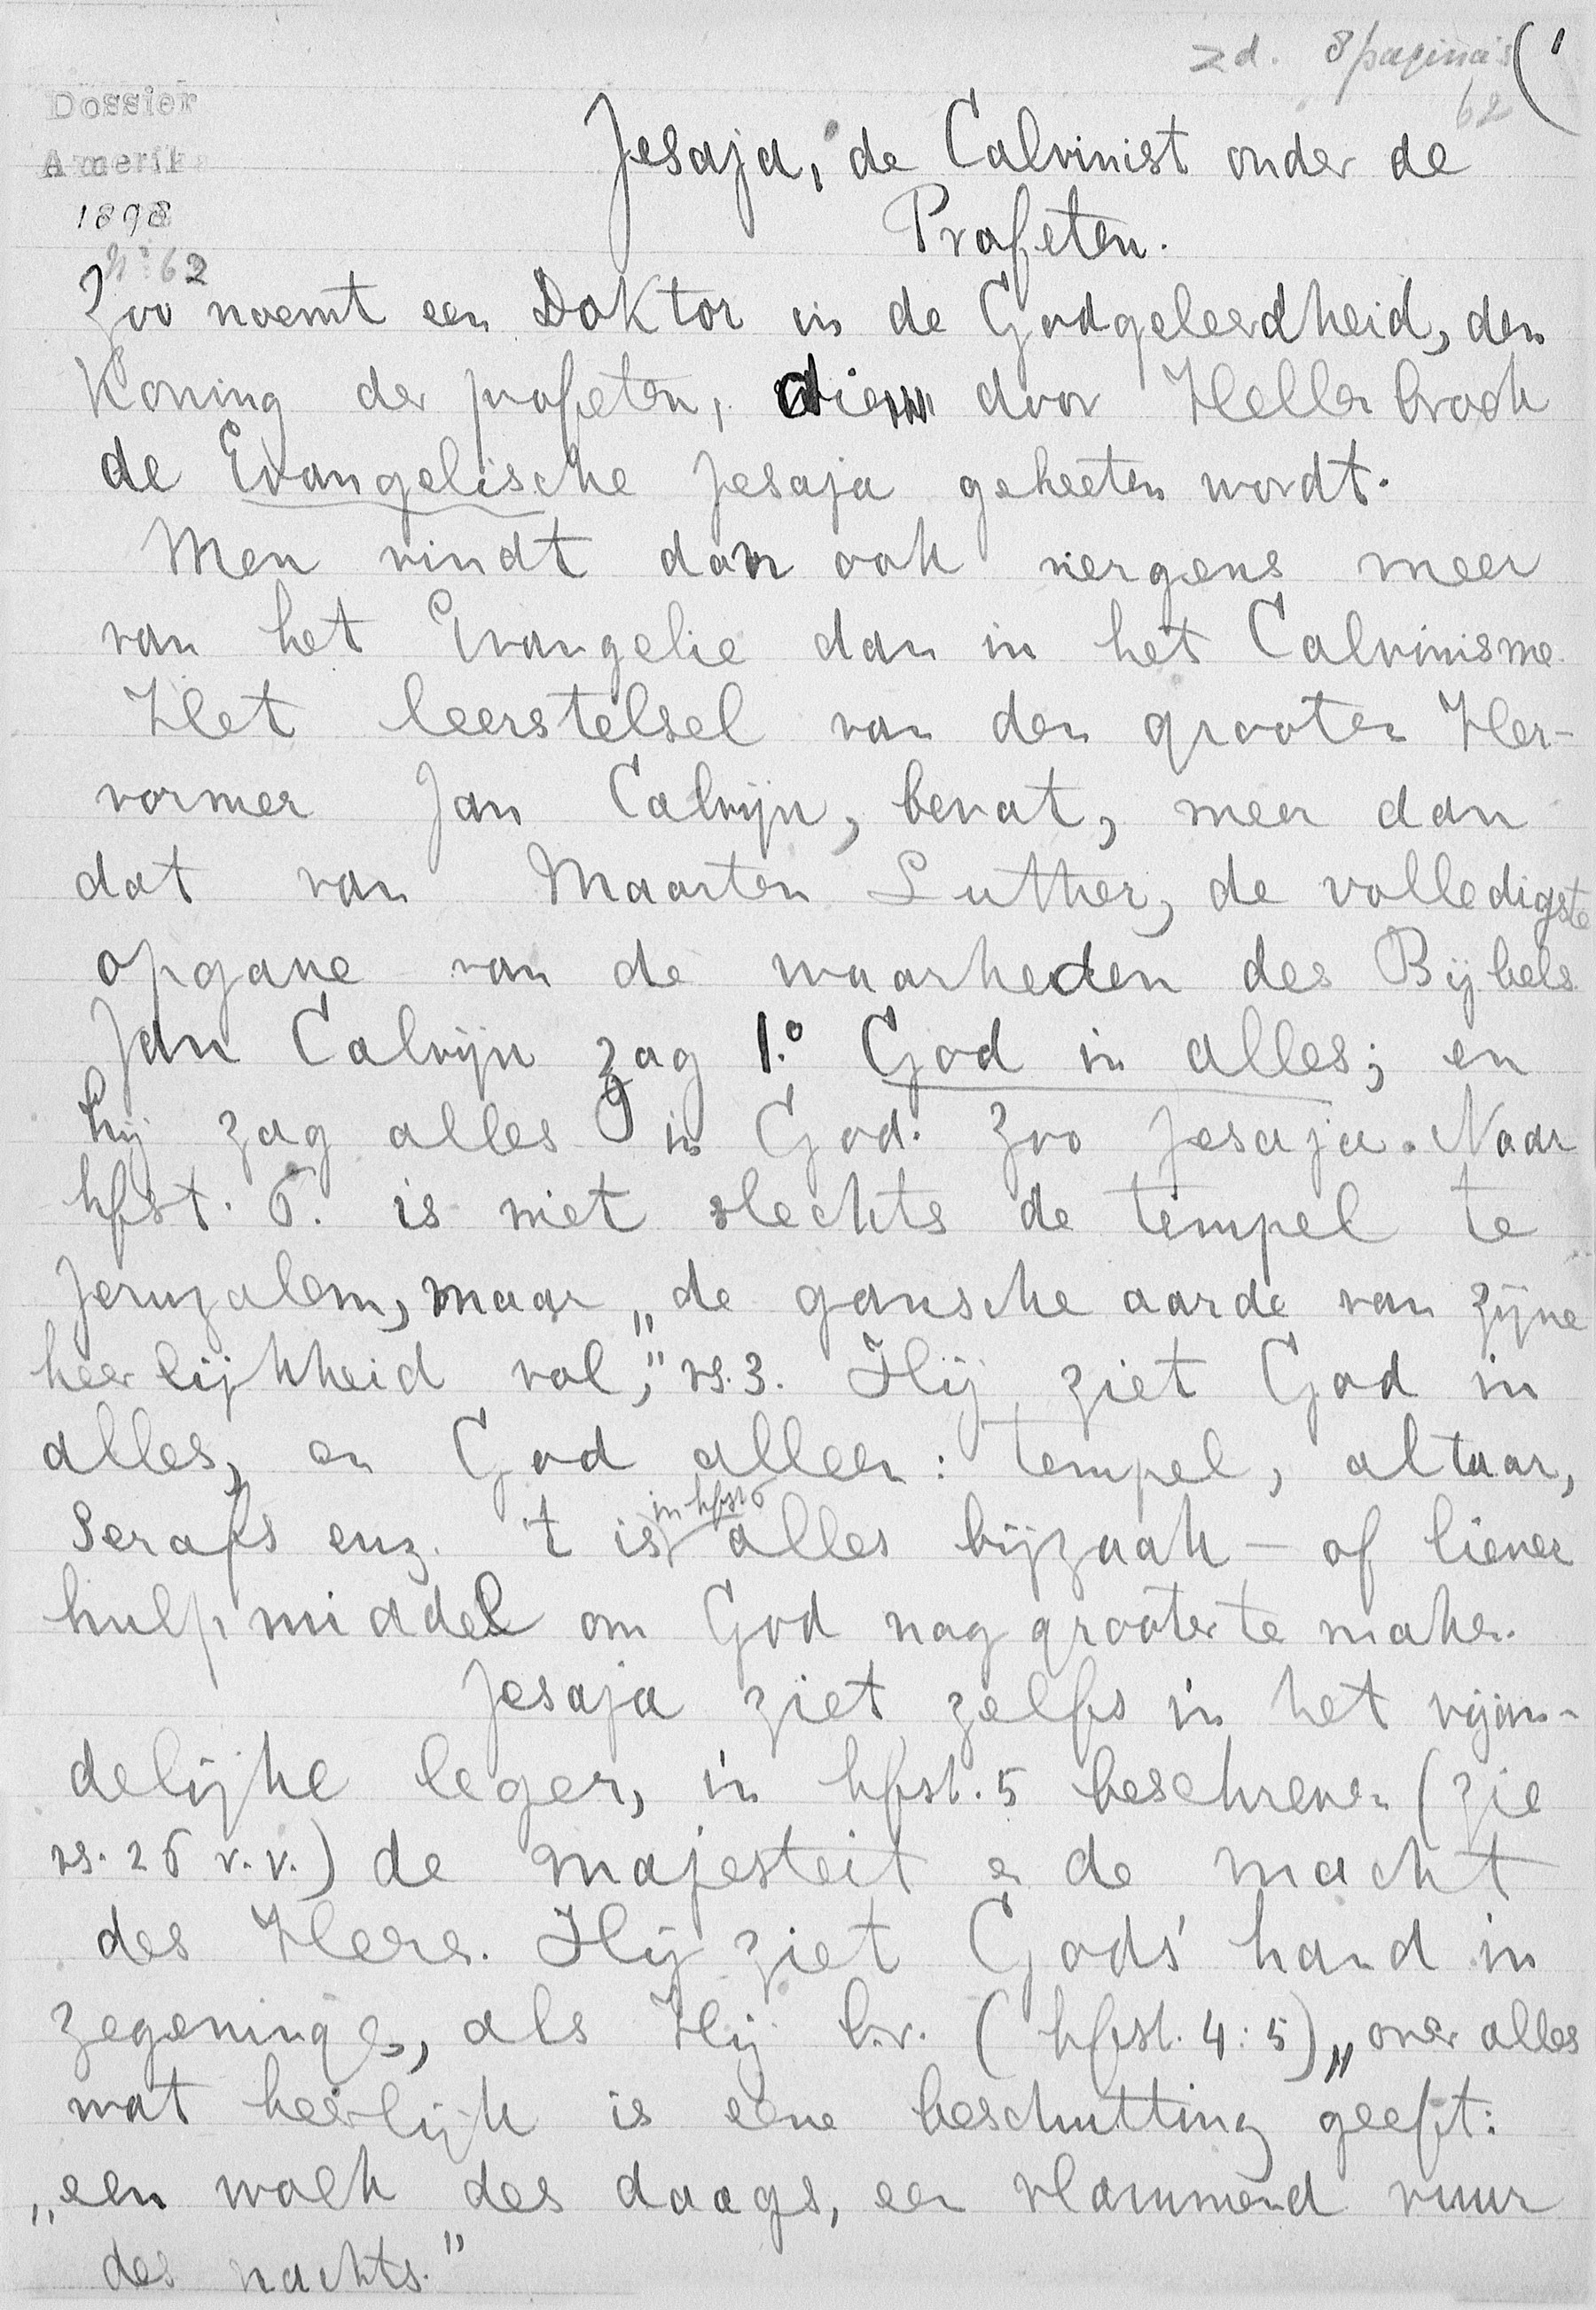 zd. 8 pagina's (1
62
Dossier
Amerik
1898
No 62
Jesaja, de Calvinist onder de
Profeten.
Zoo noemt een Doktor in de Godgeleerdheid, den
Koning der profeten, die door Hellenbroek
de Evangelische Jesaja geheeten wordt.
Men vindt dan ook nergens meer
van het Evangelie dan in het Calvinisme.
Het leerstelsel van den grooten Her-
vormer Jan Calvijn, bevat, meer dan
dat van Maarten Luther, de volledigste
opgave van de waarheden des Bijbels
Jan Calvijn zag 1.o God in alles; en
hij zag alles in God. Zoo Jesaja. Naar
hfst. 6. is niet slechts de tempel te
Jeruzalem, maar „de gansche aarde van zijne
heerlijkheid vol," vs. 3. Hij ziet God in
alles, en God alleen: tempel, altaar,
Serafs enz. 't is in hfst 6 alles bijzaak – of liever
hulpmiddel om God nog grooter te maken.
Jesaja ziet zelfs in het vijan-
delijke leger, in hfst. 5 beschreven (zie
vs. 26 v.v.) de majesteit en de macht
des Heren. Hij ziet Gods' hand in
zegeningen, als Hij b.v. (hfst. 4:5) „over alles
wat heerlijk is eene beschutting geeft:
„een wolk des daags, een vlammend vuur
des nachts."